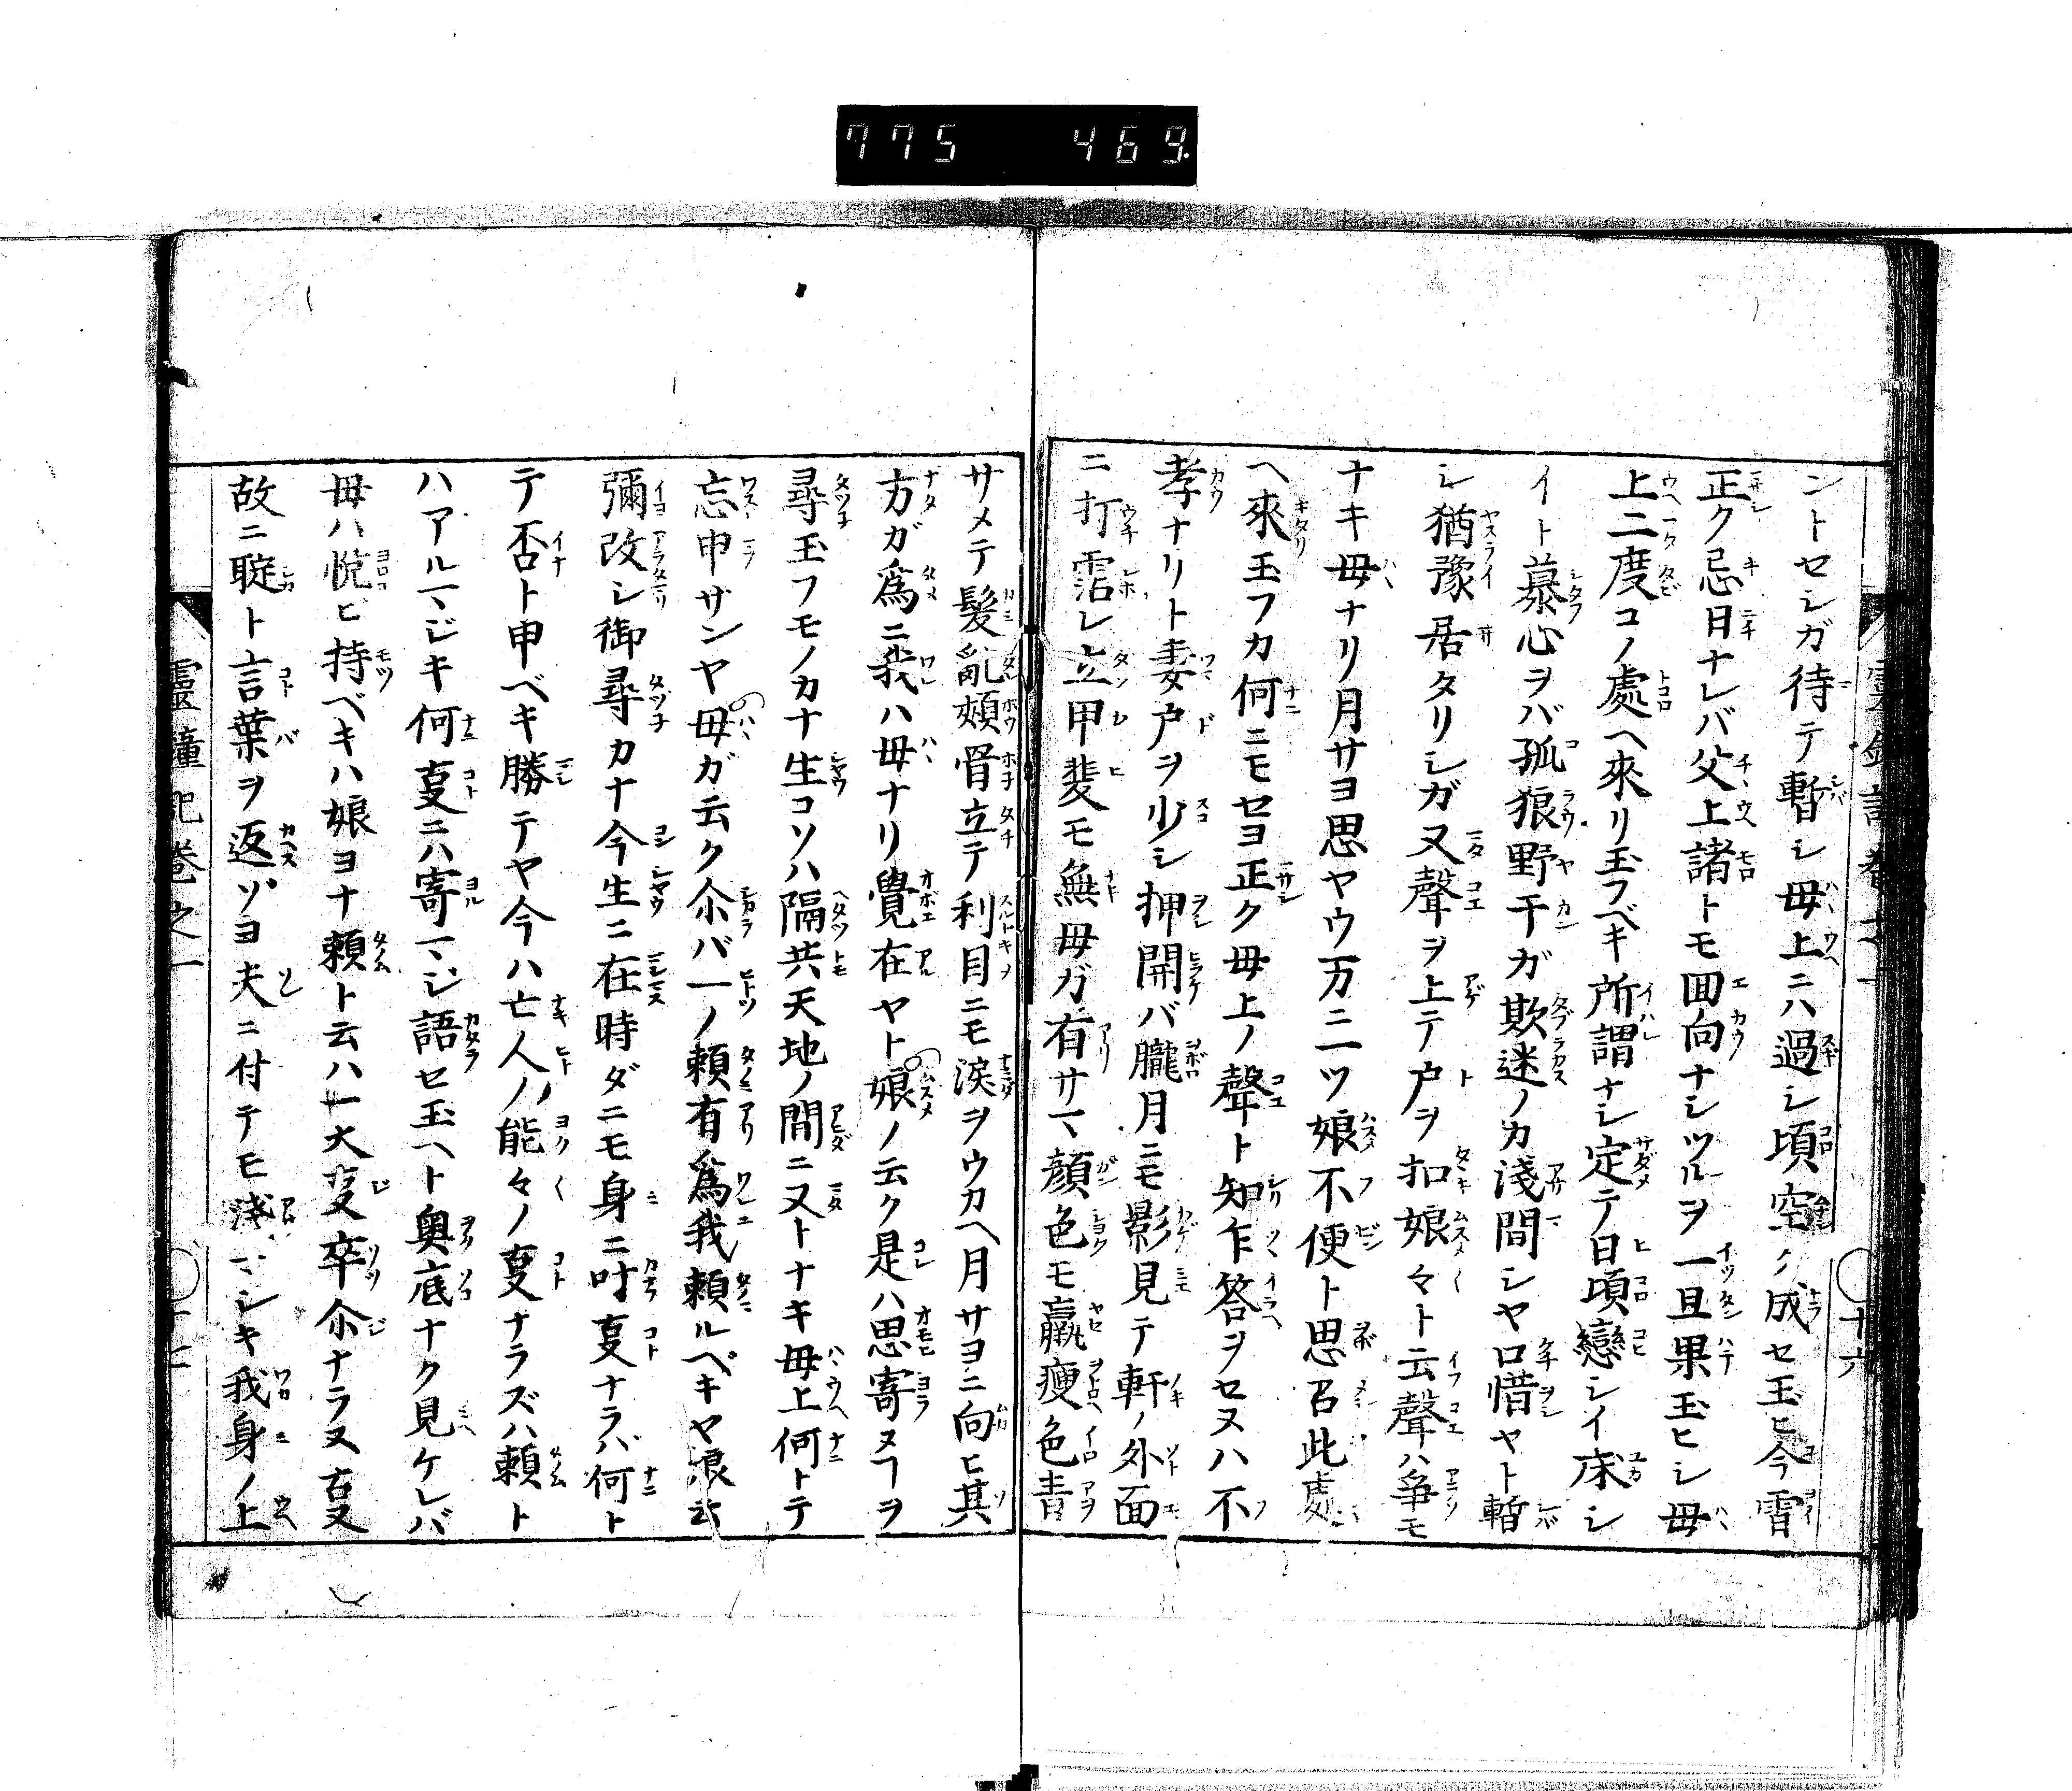 775 469
ントセシガ待テ暫シ母上ニハ過シ頃空ク成セ玉ヒ今霄
正ク忌日ナレバ父上諸トモ囬向ナシツルヲ一旦果玉ヒシ母
上二度コノ處ヘ來リ玉フベキ所謂ナシ定テ日頃戀シイ床シ
イト慕心ヲバ孤狼野干ガ欺迷ノカ淺間シヤ口惜ヤト暫
シ猶豫居タリシガ又聲ヲ上テ戸ヲ扣娘々ト云聲ハ爭モ
ナキ母ナリ月サヨ思ヤウ万ニ一ツ娘不便ト思召此處
ヘ來玉フカ何ニモセヨ正ク母上ノ聲ト知乍答ヲセヌハ不
孝ナリト妻戸ヲ少シ押開バ朧月ニモ影見テ軒ノ外面
ニ打霑レ立甲斐モ無母ガ有サマ顔色モ羸痩色青
サメテ髮亂頬骨立テ利目ニモ涙ヲウカヘ月サヨニ向ヒ其
方ガ爲ニ我ハ母ナリ覺在ヤト娘ノ云ク是ハ思寄ヌヿヲ
尋玉フモノカナ生コソハ隔共天地ノ間ニ又トナキ母上何トテ
忘申サンヤ母ガ云ク尒バ一ノ頼有爲我頼ルベキヤ娘云
彌改シ御尋カナ今生ニ在時ダニモ身ニ叶叓ナラバ何ト
テ否ト申ベキ勝テヤ今ハ亡人ノ能々ノ叓ナラズハ頼ト
ハアルマジキ何叓ニハ寄マシ語セ玉ヘト奥底ナク見ケレバ
母ハ悦ビ持ベキハ娘ヨナ頼ト云ハ一大叓卒尒ナラヌ叓
故ニ聢ト言葉ヲ返ゾヨ夫ニ付テモ淺マシキ我身ノ上
靈 記卷之一